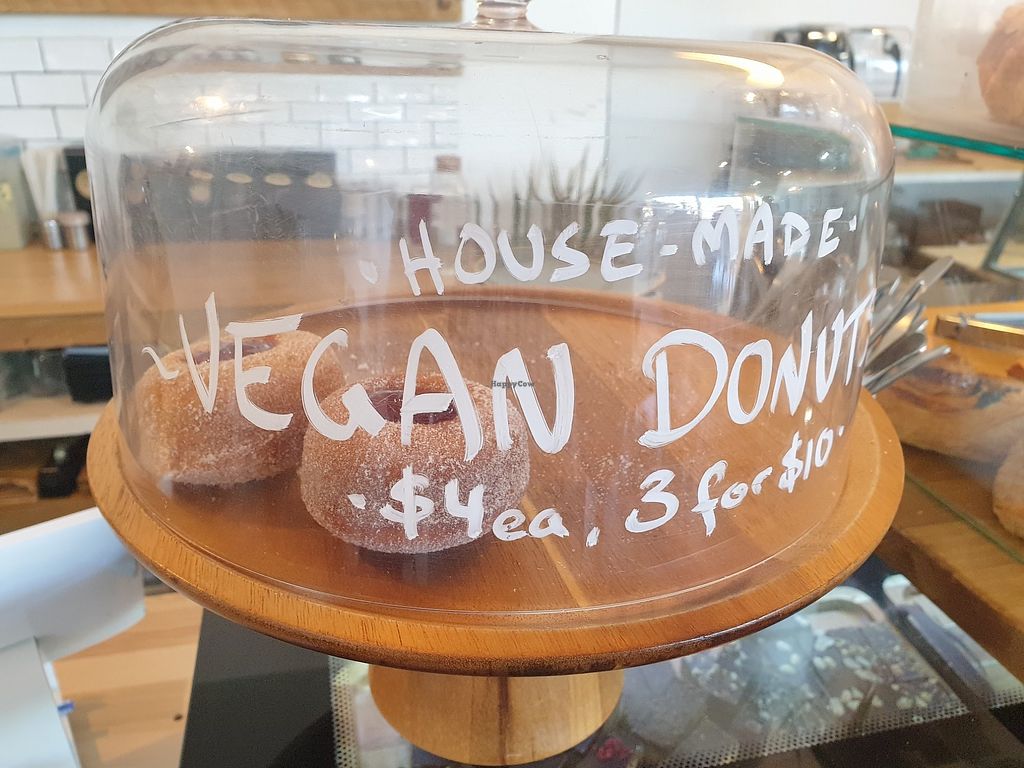 ·HOUSE-MADE·
~VEGAN DONUT
HappyCow
·$4ea, 3 for $10·